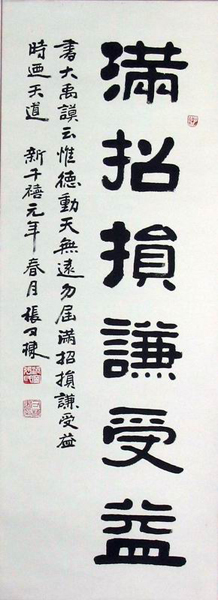 滿招損謙受益
書大禹謨云惟德動天無遠勿屆滿招損謙受益
時迺天道 新千禧元年春月張